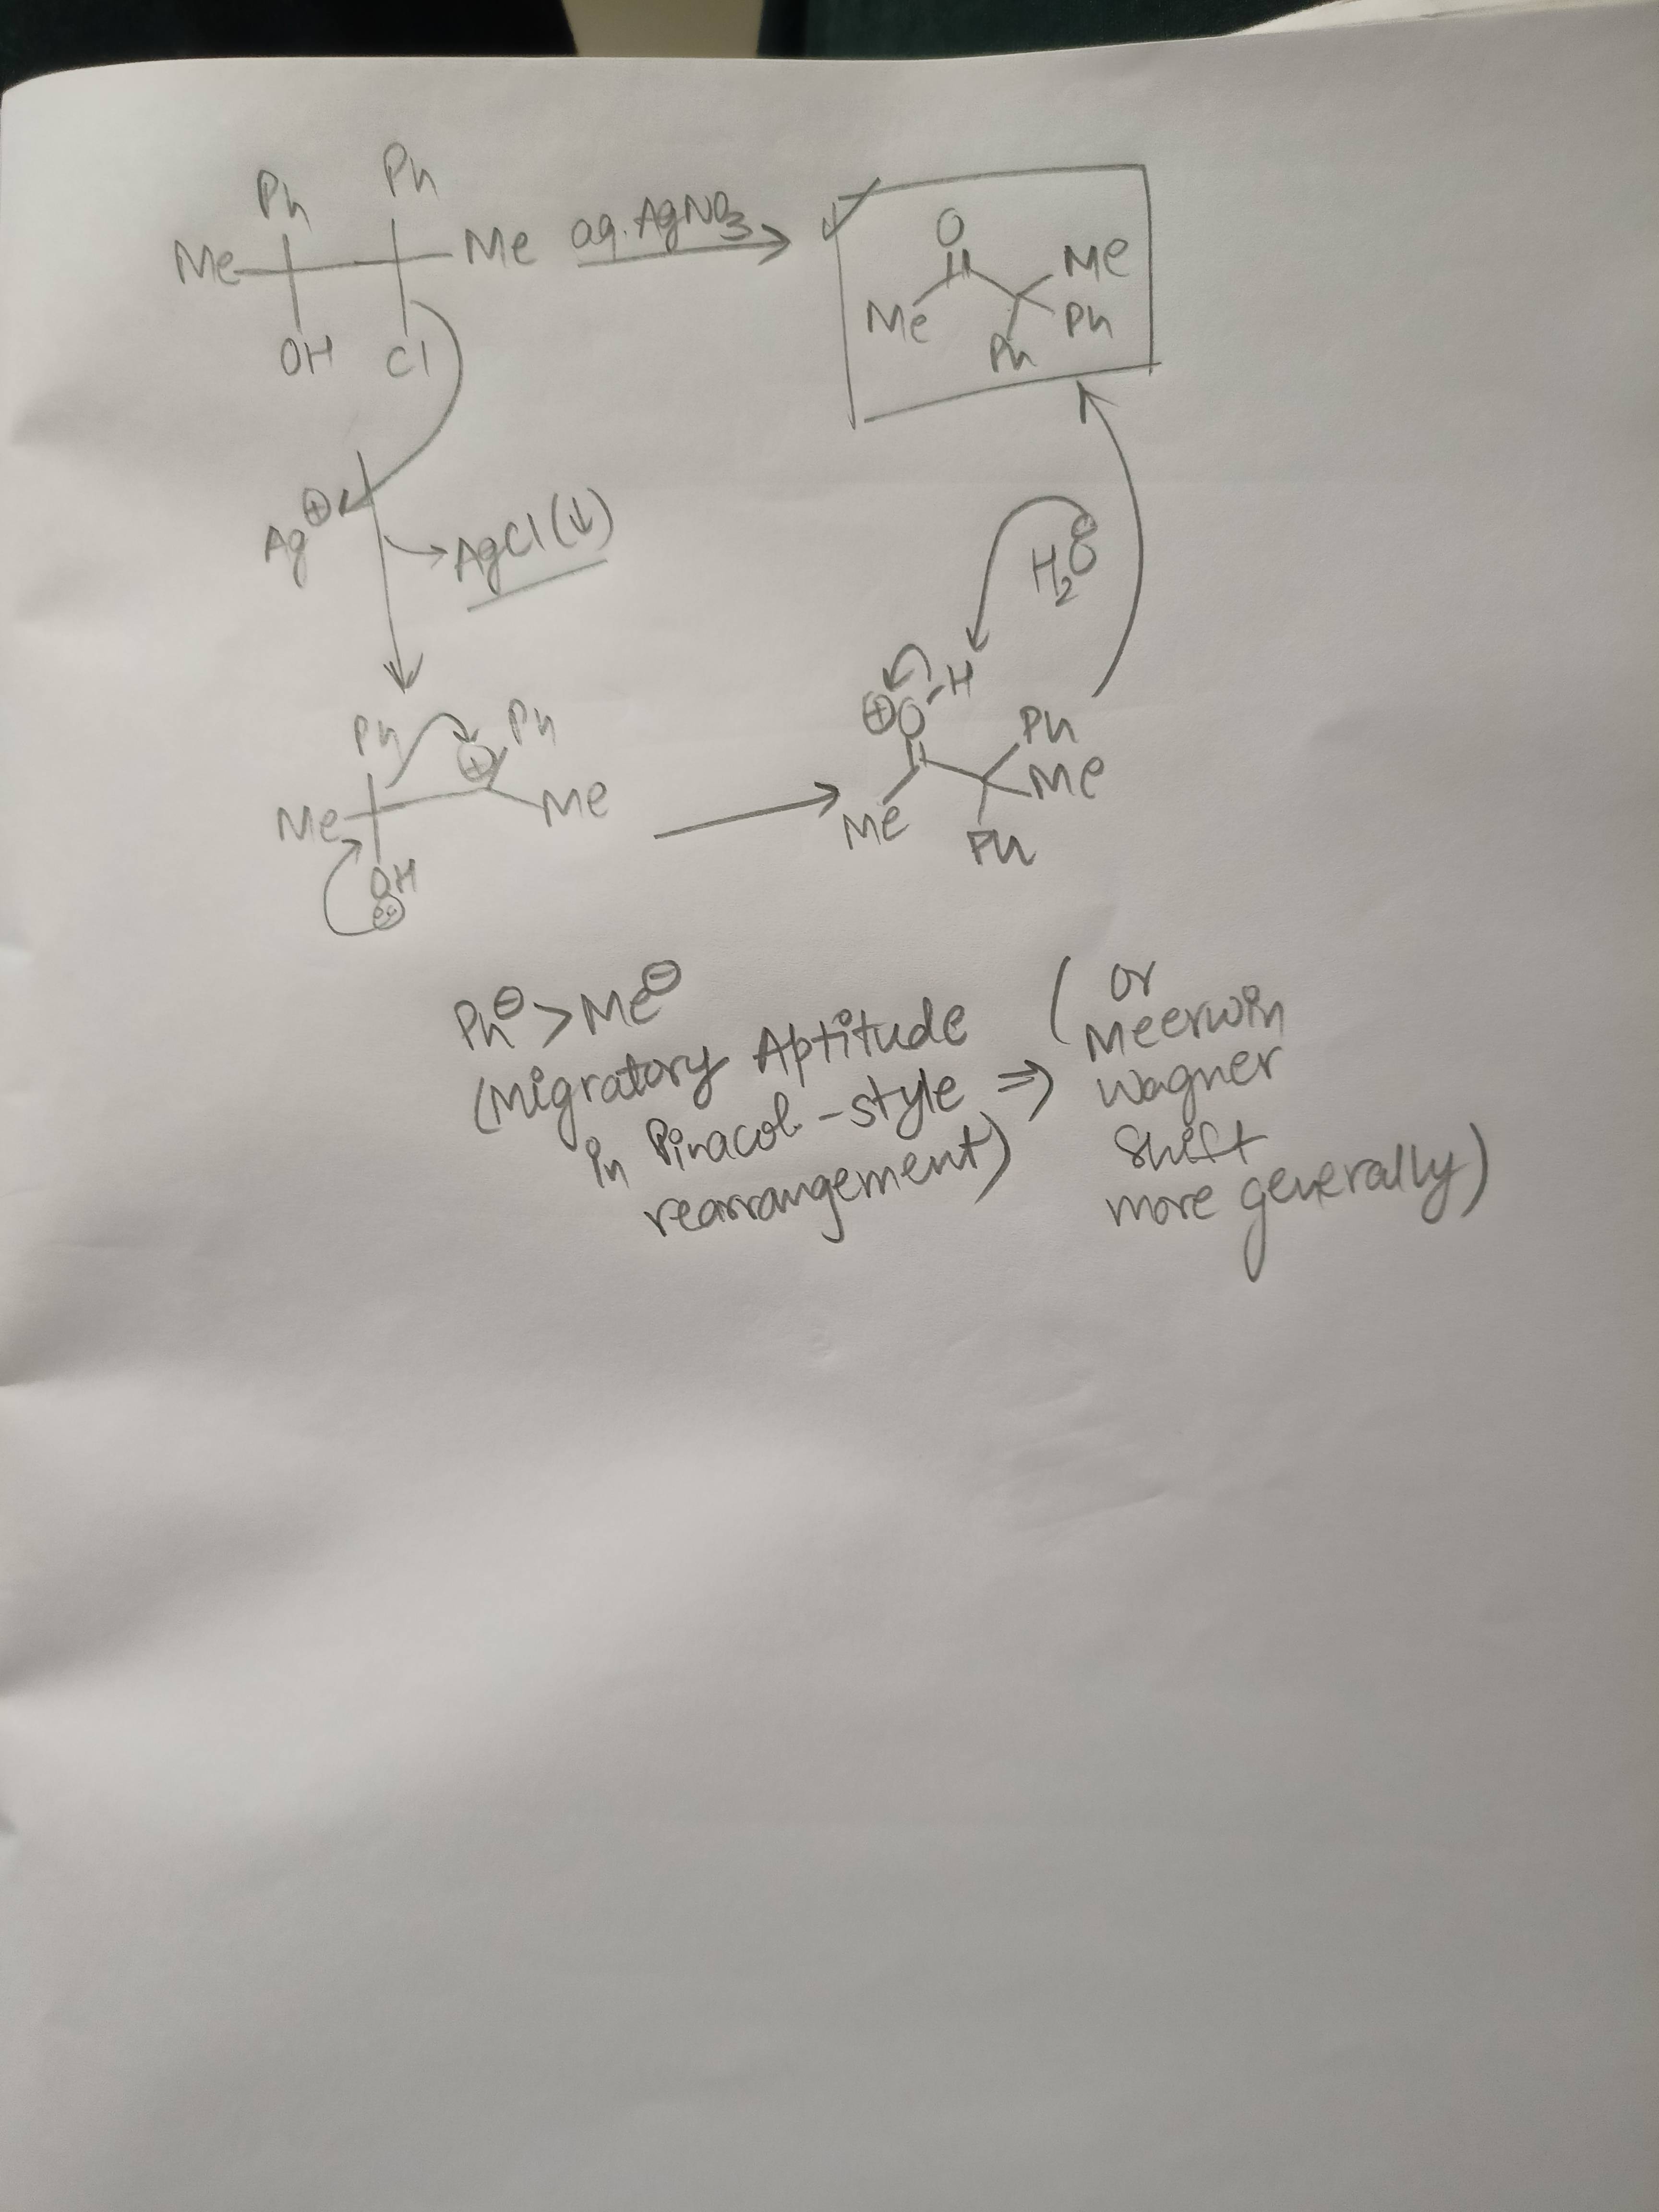 Ph Ph
Me Me aq. AgNO3
OH Cl
O
Me Me
Ph Ph
Ag⊕
AgCl(↓)
H2O
Ph ⊕ Ph
Me Me
OH
⊕O-H
Ph
Me Me
Ph
Ph⊖ > Me⊖
(Migratory Aptitude
in Pinacol-style ⇒
rearrangement)
(or
Meerwin
Wagner
Shift
more generally)